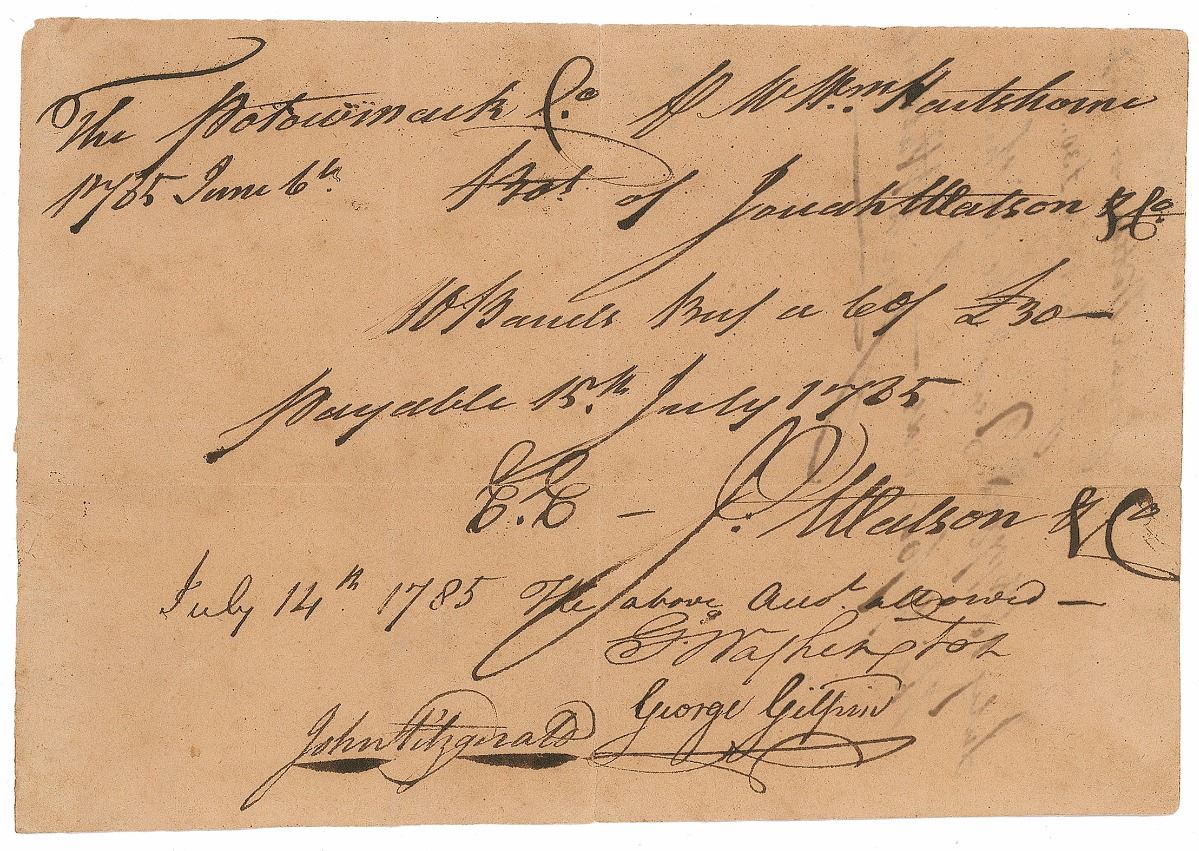 The Potowmack Co. P Mr Wm Hartshorne
1785 June 6th. Bot of Josiah Watson & Co.
10 Barrels Beef a 60/ £30—
Payable 15th. July 1785
E.E — J. Watson & Co
July 14th. 1785 The above Acct. allowed —
Go. Washington
George Gilpin
John Fitzgerald